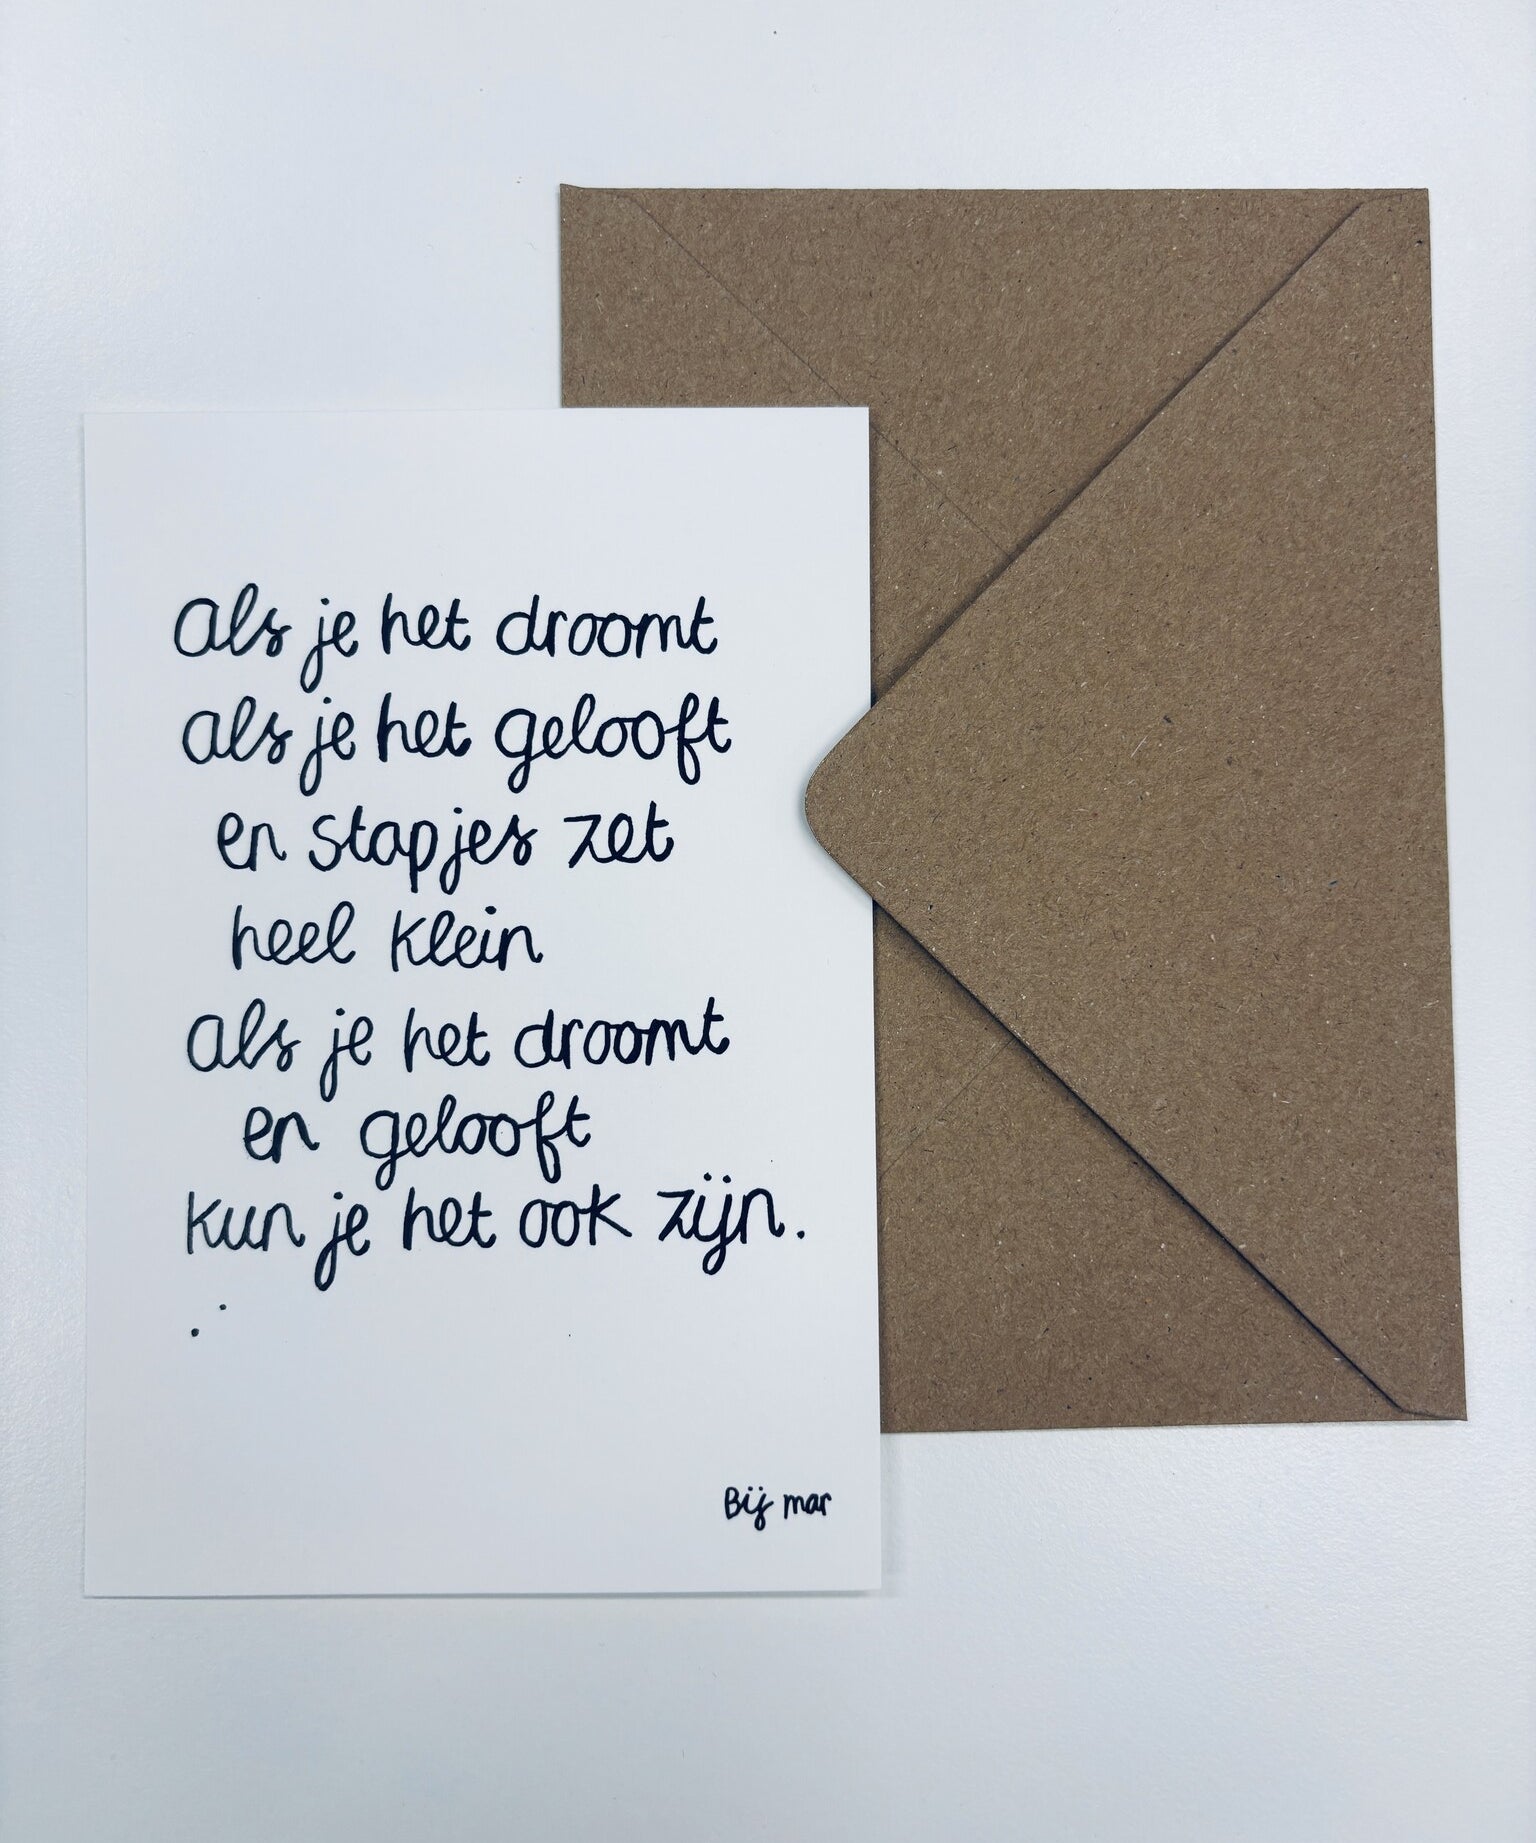 als je het droomt
als je het gelooft
en stapjes zet
heel klein
als je het droomt
en gelooft
kun je het ook zijn.
Bij mar